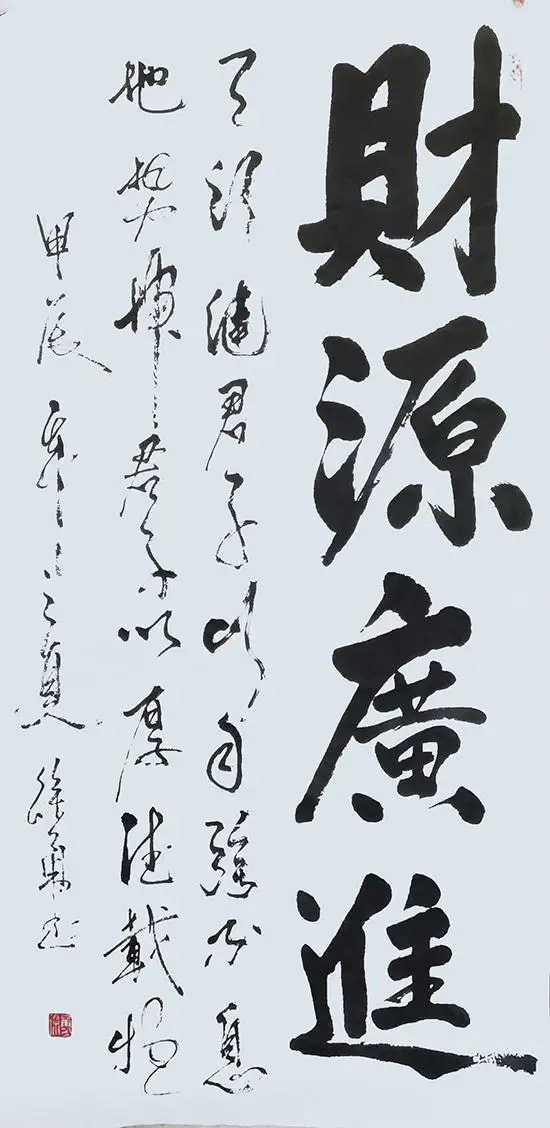 財源廣進
天行健君子以自強不息
地勢坤君子以厚德載物
甲辰年之夏